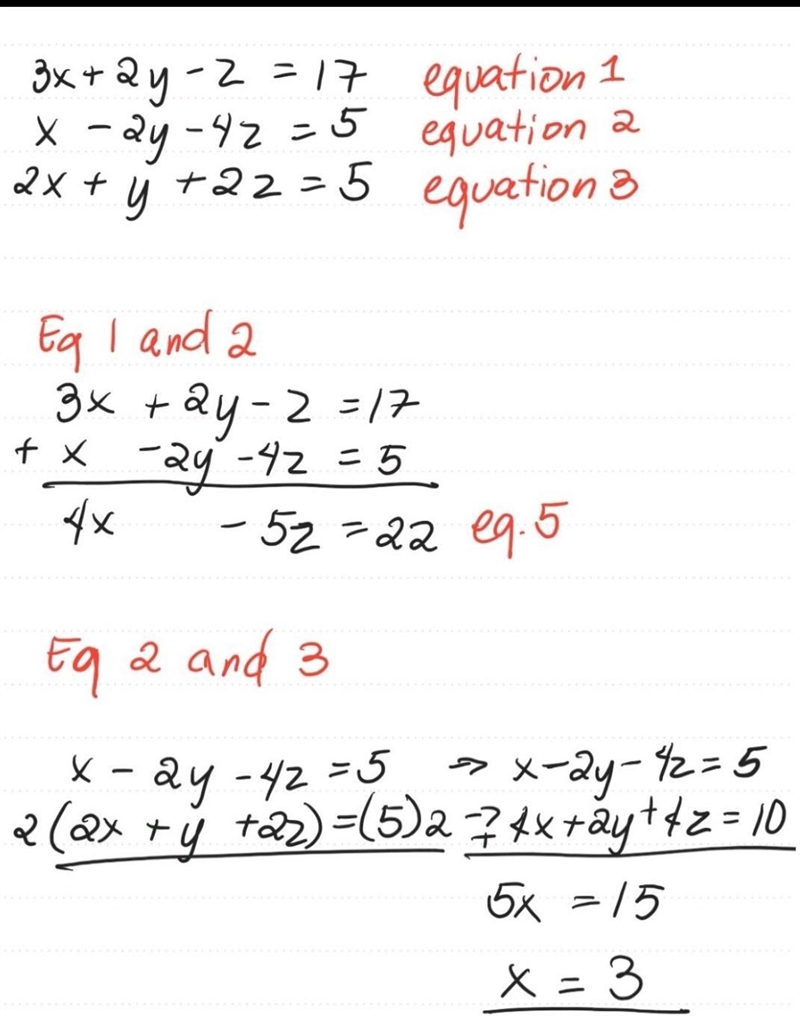 3x + 2y - z = 17 equation 1
x - 2y - 4z = 5 equation 2
2x + y + 2z = 5 equation 3
Eq 1 and 2
3x + 2y - z = 17
+ x - 2y - 4z = 5
4x - 5z = 22 eq. 5
Eq 2 and 3
x - 2y - 4z = 5 → x - 2y - 4z = 5
2(2x + y + 2z) = (5)2 → + 4x + 2y + 4z = 10
5x = 15
x = 3